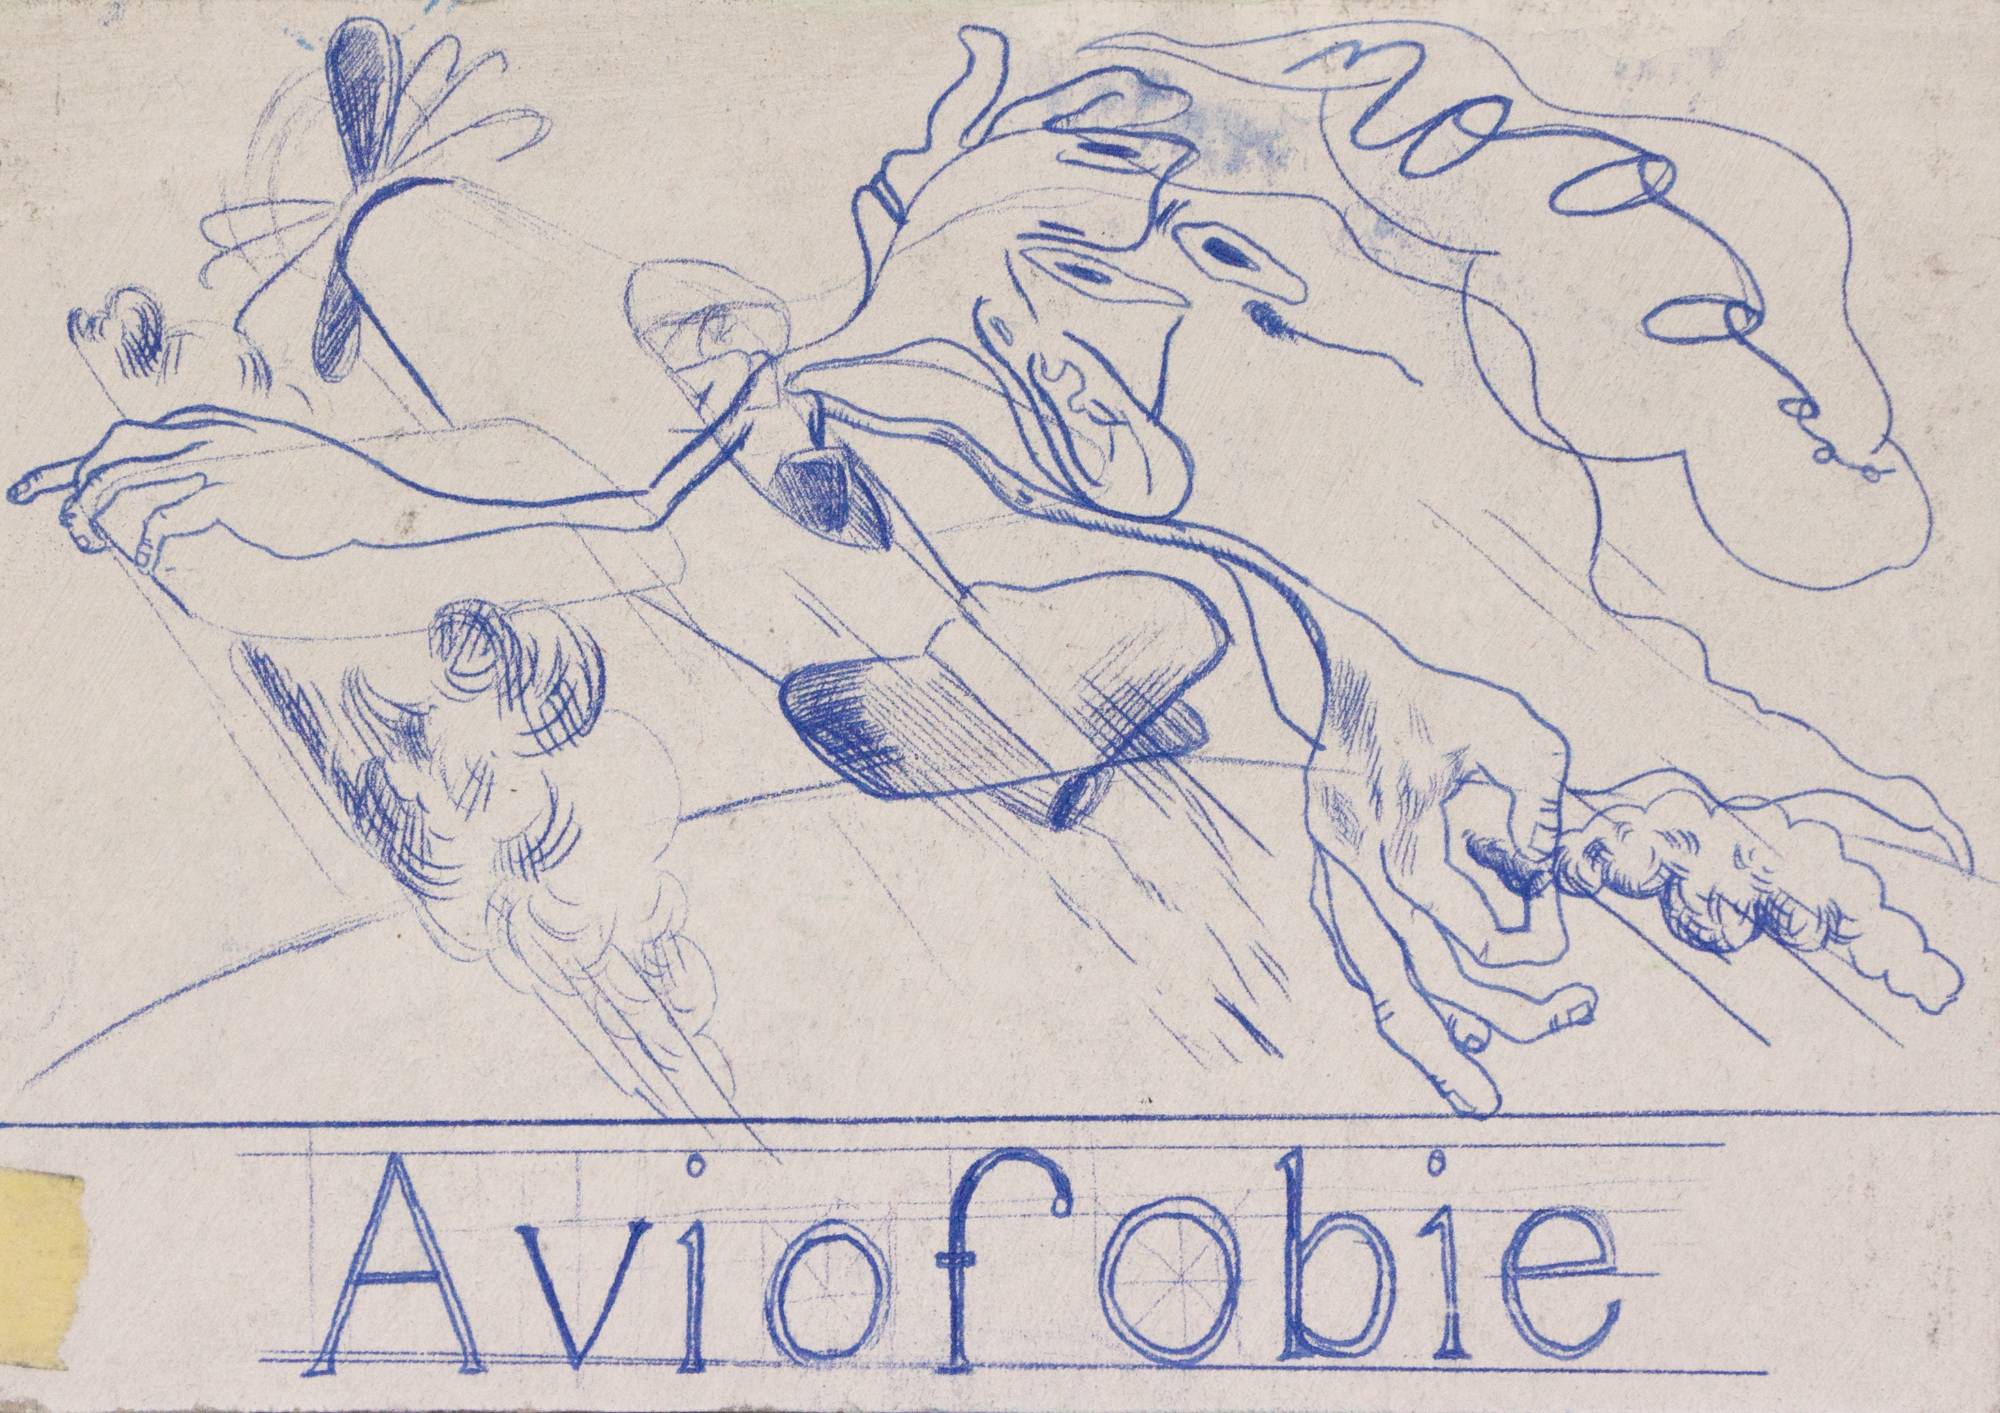 nooooooo
Aviofobie